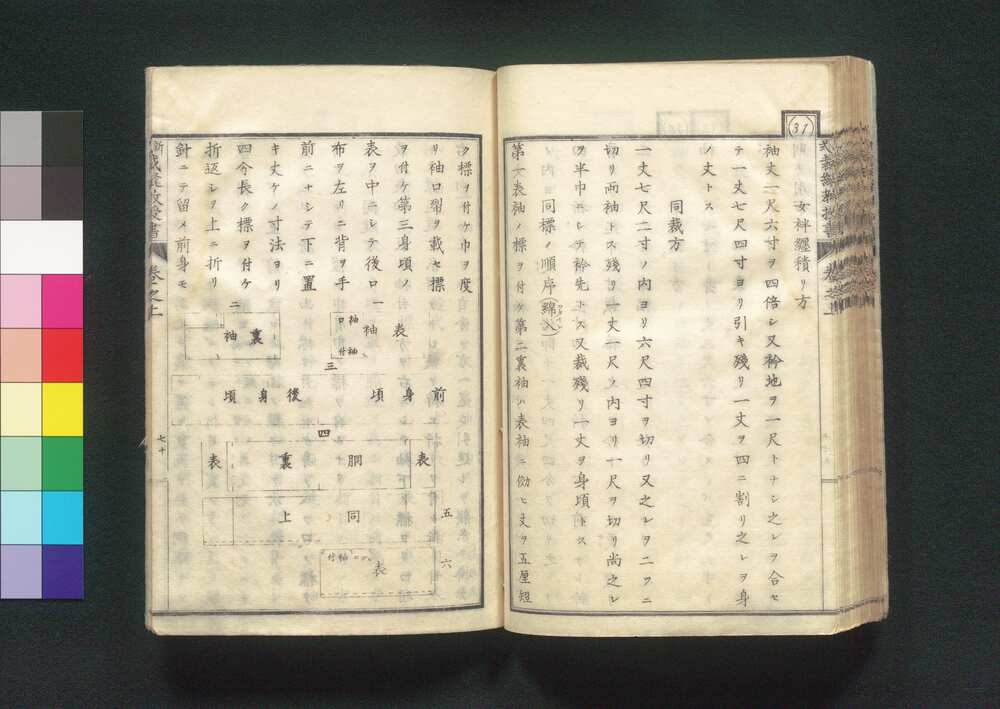 (31)
女袢纏積リ方
袖丈一尺六寸ヲ四倍シ又衿地ヲ一尺トナシ之レヲ合セ
テ一丈七尺四寸ヨリ引キ殘リ一丈ヲ四ニ割リ之レヲ身
ノ丈トス
同裁方
一丈七尺二寸ノ内ヨリ六尺四寸ヲ切リ又之レヲ二ツニ
切リ兩袖トス殘リ一丈一尺ノ内ヨリ一尺ヲ切リ尚之レ
ヲ半巾ニシテ衿先トス又裁殘リ一丈ヲ身頃トス
同標ノ順序(綿入)
第一表袖ノ標ヲ付ケ第二裏袖ハ表袖ニ傚ヒ丈ヲ五厘短
ク標ヲ付ケ巾ヲ度
リ袖口布ヲ載セ標
ヲ付ケ第三身頃ノ
表ヲ中ニシテ後ロ
布ヲ左リニ背ヲ手
前ニナシテ下ニ置
キ丈ケノ寸法ヨリ
四分長ク標ヲ付ケ
折返シヲ上ニ折リ
針ニテ留メ前身モ
一
表
袖
袖口
袖付
二
裏
袖
三
前身頃
後身頃
四
表
胴
裏
表
五
同
上
六
表
袖付
裁縫教授書
卷之上
七十